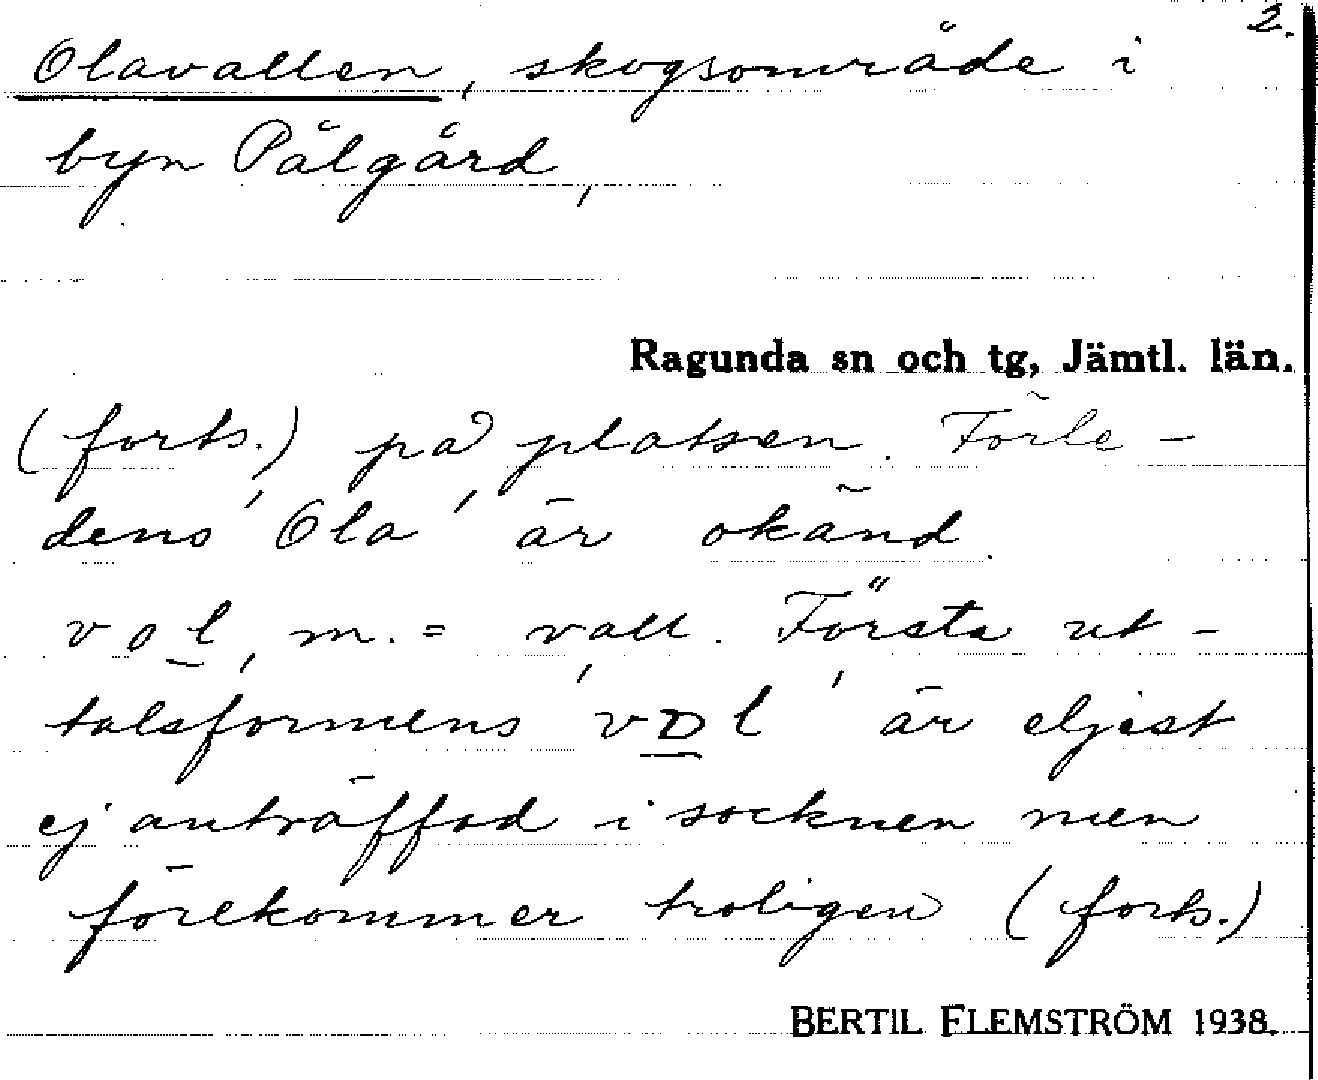 2.
Olavallen, skogsområde i
byn Pålgård,
Ragunda sn och tg, Jämtl. län.
(forts.) på platsen. Förle-
dens 'Ola' är okänd.
vol, m. = vall. Första ut-
talsformens 'vɒl' är eljest
ej anträffad i socknen men
förekommer troligen (forts.)
BERTIL FLEMSTRÖM 1938.